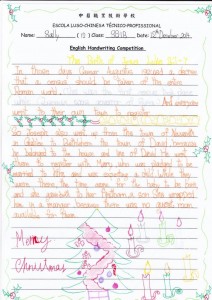 中葡職業技術學校
ESCOLA LUSO-CHINESA TÉCNICO-PROFISSIONAL
Name: Sally Class: Date: December 2014
English Handwriting Competition
The Birth of Jesus Luke 2:1-7
In those days Caesar Augustus issued a decree
that a census should be taken of the entire
Roman world.
And everyone
went to their own town to register.
So Joseph also went up from the town of Nazareth
in Galilee to Bethlehem the town of David because
he belonged to the house and line of David. He went
there to register with Mary who was pledged to be
married to him and was expecting a child. While they
were there, the time came for the baby to be born
and she gave birth to her firstborn, a son. She wrapped
him in a manger because there was no guest room
available for them
Merry
Christmas